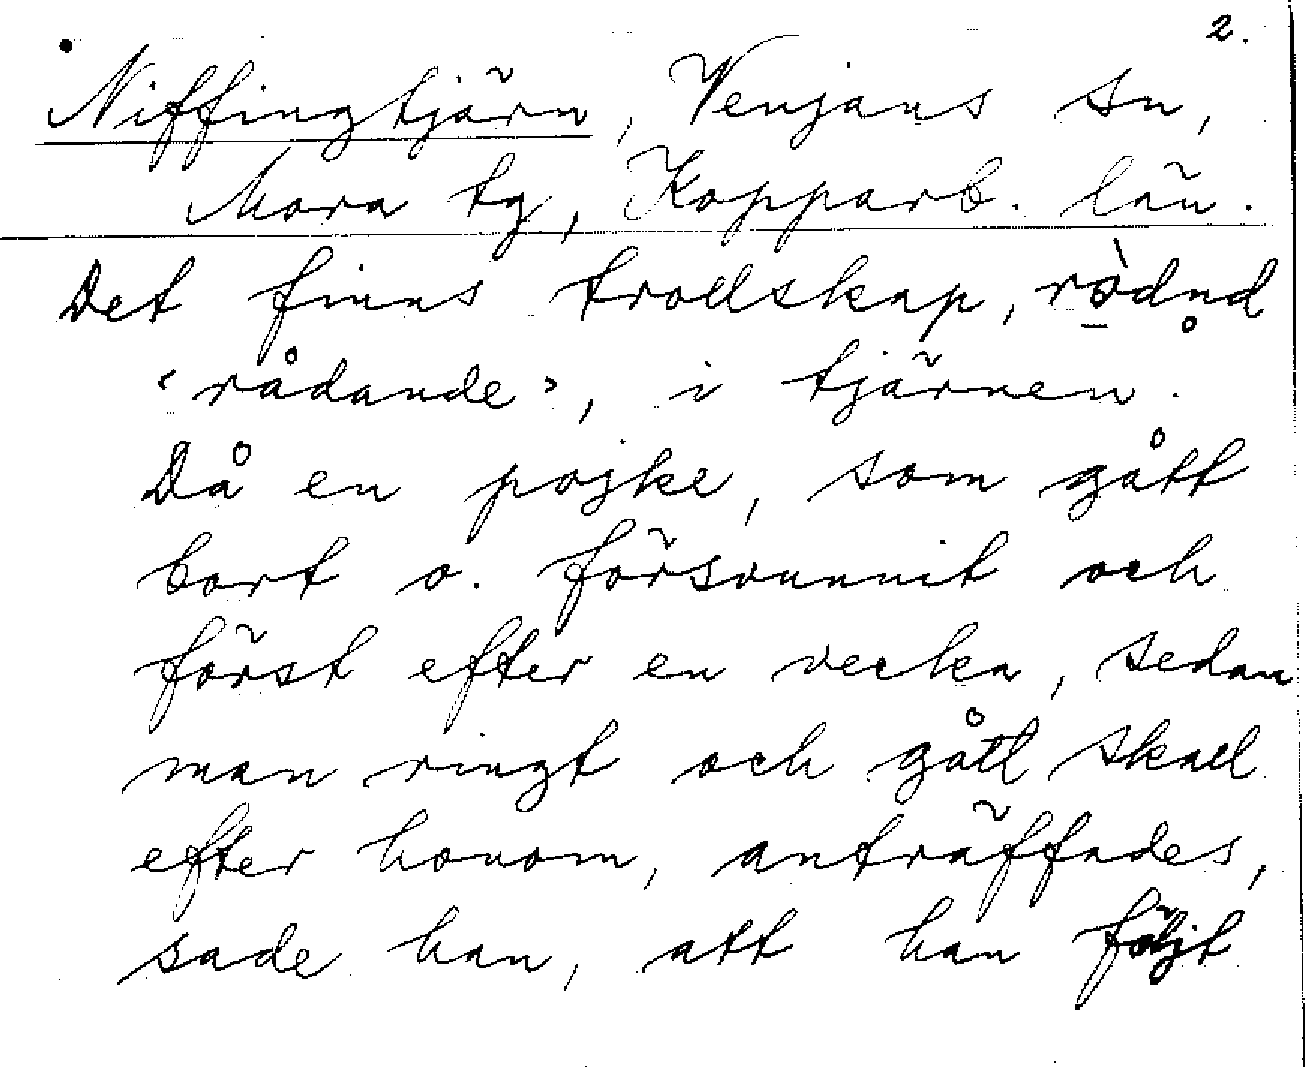 2.
Niffingtjärn, Venjans sn,
Mora tg, Kopparb. län.
Det finns trollskap, rò̱dn̥d
‘rådande’, i tjärnen.
Då en pojke, som gått
bort o. försvunnit och
först efter en vecka, sedan
man ringt och gått skall
efter honom, anträffades,
sade han, att han följt